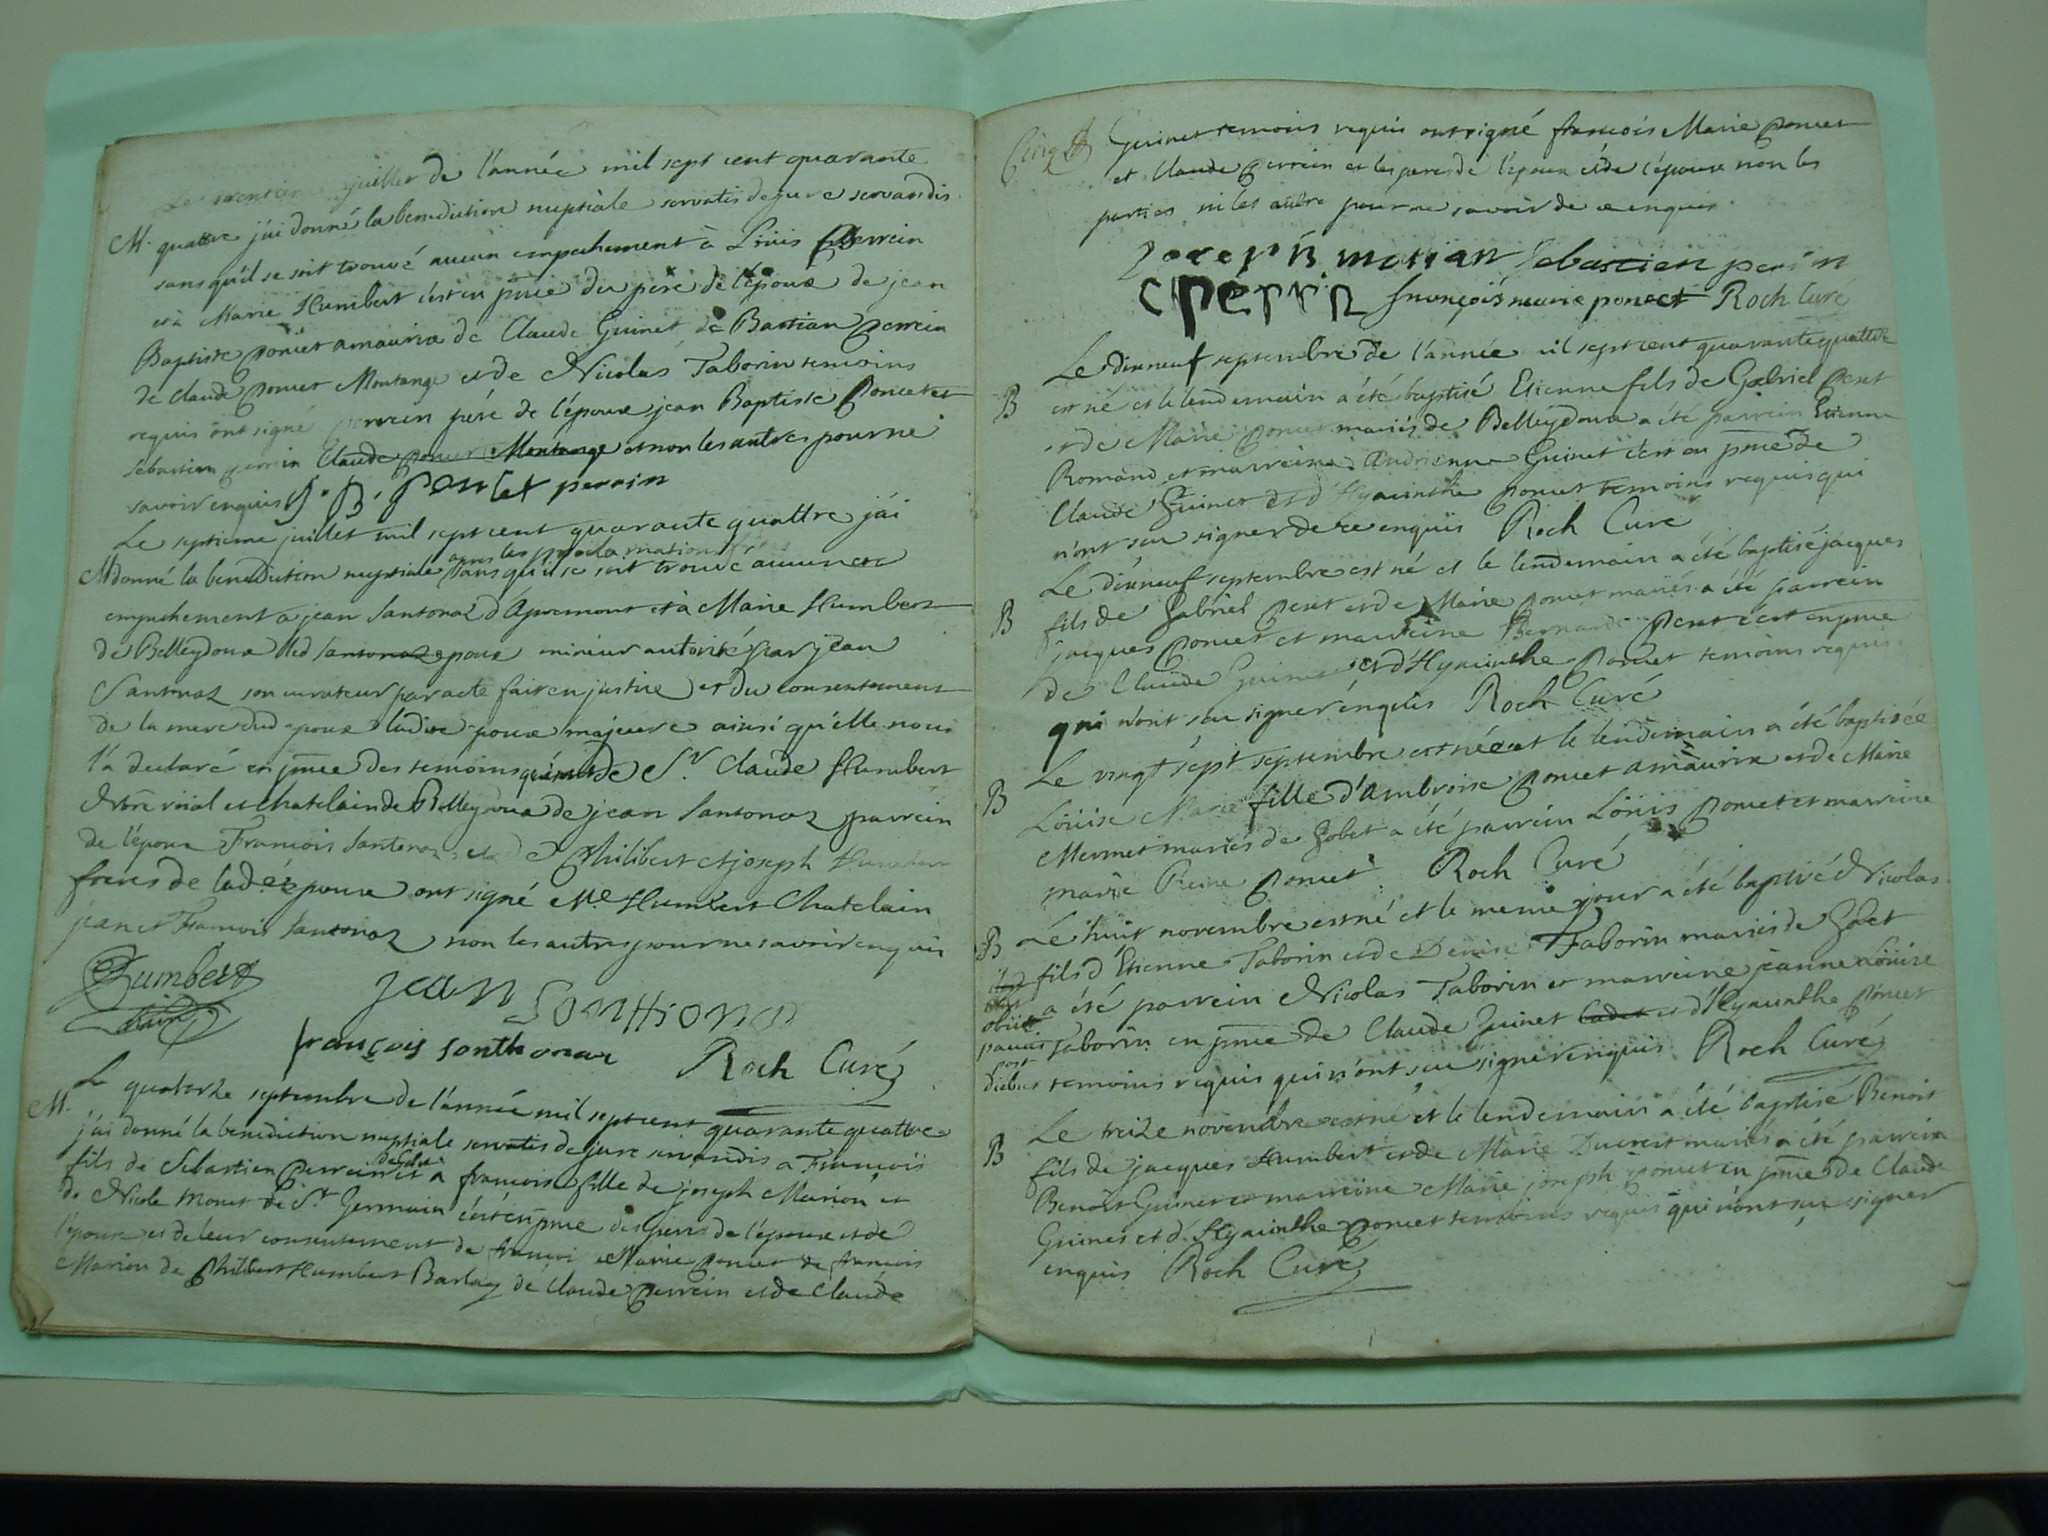 juillet de l'année mil sept cent quarante
M. quattre j'ai donné la benediction nuptiale servatis de jure servandis
sans qu'il se soit trouvé aucun empechement à Loüis Perrein
et à Marie Humbert c'est en pnce du pere de l'époux de jean
Baptiste Poncet amauriα de Claude Guinet de Bastian Perrein
de Claude Poncet Montange et de Nicolas Taborin temoins
requis ont signé perrein pére de l'époux jean Baptiste Poncet et
Sebastien perrein Claude Poncet Montange et non les autres pour ne
savoir enquis J. B. Poncet perrin
Le septieme juillet mil sept cent quarante quattre j'ai
apres les proclamations
M donné la benediction nuptiale sans qu'il se soit trouvé aucun
empechement a jean Santonaz d'Apremont et à Marie Humbert
de Belleydoux led Santonaz epoux mineur autorisé par jean
Santonaz son curateur par acte fait en justice et du consentement
de la mere dud epoux ladite epouse majeure ainsi qu'elle nous
l'a declaré en pnce des temoins de Sr. Claude Humbert
Notre roial et chatelain de Belleydoux de jean Santonaz parrein
de l'époux François Santonaz et de Philibert et joseph Humbert
freres de lade épouse ont signé Me Humbert Chatelain
jean et François Santonaz non les autres pour ne savoir enquis
Humbert
jean Sonttiona
françois sonthonax Roch Curé
M. Le quatorze septembre de l'année mil sept cent quarante quattre
j'ai donné la benediction nuptiale servatis de jure servandis a François
fils de Sebastien Perrein et a françoise fille de joseph Marion et
de Nicole Monet de St. Germain c'est en pnce des peres de l'époux et de
l'épouse et de leur consentement de françois Marie Poncet de françois
Marion de Philibert Humbert Barlaz de Claude Perrein et de Claude
Guinet temoins requis ont signé françois Marie Poncet
et Claude Perrein et les peres de l'époux et de l'épouse non les
parties ni les autre pour ne savoir de ce enquis
Joseph marian Sebastien perin
C Perrin françois marie poncet Roch Curé
Le dixneuf septembre de l'année mil sept cent quarante quattre
B est né et le lendemain a été baptisé Etienne fils de Gabriel Peret
et de Marie Poncet mariés de Belleydoux a été parrein Etienne
Romand et marreine Andrienne Guinet c'est en pnce de
Claude Guinet et d'Hyacinthe Poncet temoins requis qui
n'ont seu signer de ce enquis Roch Curé
Le dixneuf septembre est né et le lendemain a été baptisé jacques
B fils de Gabriel Peret et de Marie Poncet mariés a été parrein
jacques Poncet et marreine Bernarde Peret c'est en pnce
de Claude Guinet et d'Hyacinthe Poncet temoins requis
qui n'ont seu signer enquis Roch Curé
Le vingt sept septembre est née et le lendemain a été baptisée
B Loüise Marie fille d'Ambroise Poncet amauriα et de Marie
Mermet mariés de Gobet a été parrein Loüis Poncet et marreine
marie Reine Poncet Roch Curé
B Le huit novembre est né et le meme jour a été baptisé Nicolas
fils d'Etienne Taborin et de Denise Taborin mariés de Gobet
a été parrein Nicolas Taborin et marreine jeanne Loüise
Taborin en pnce de Claude Guinet Cadet et d'Hyacinthe Poncet
temoins requis qui n'ont seu signer enquis Roch Curé
obiit
paucis
post
diebus
Le treize novembre est né et le lendemain a été baptisé Benoit
B fils de jacques Humbert et de Marie Ducret mariés a été parrein
Benoit Guinet et marreine Marie joseph Poncet en pnce de Claude
Guinet et d'Hyacinthe Poncet temoins requis qui n'ont seu signer
enquis Roch Curé